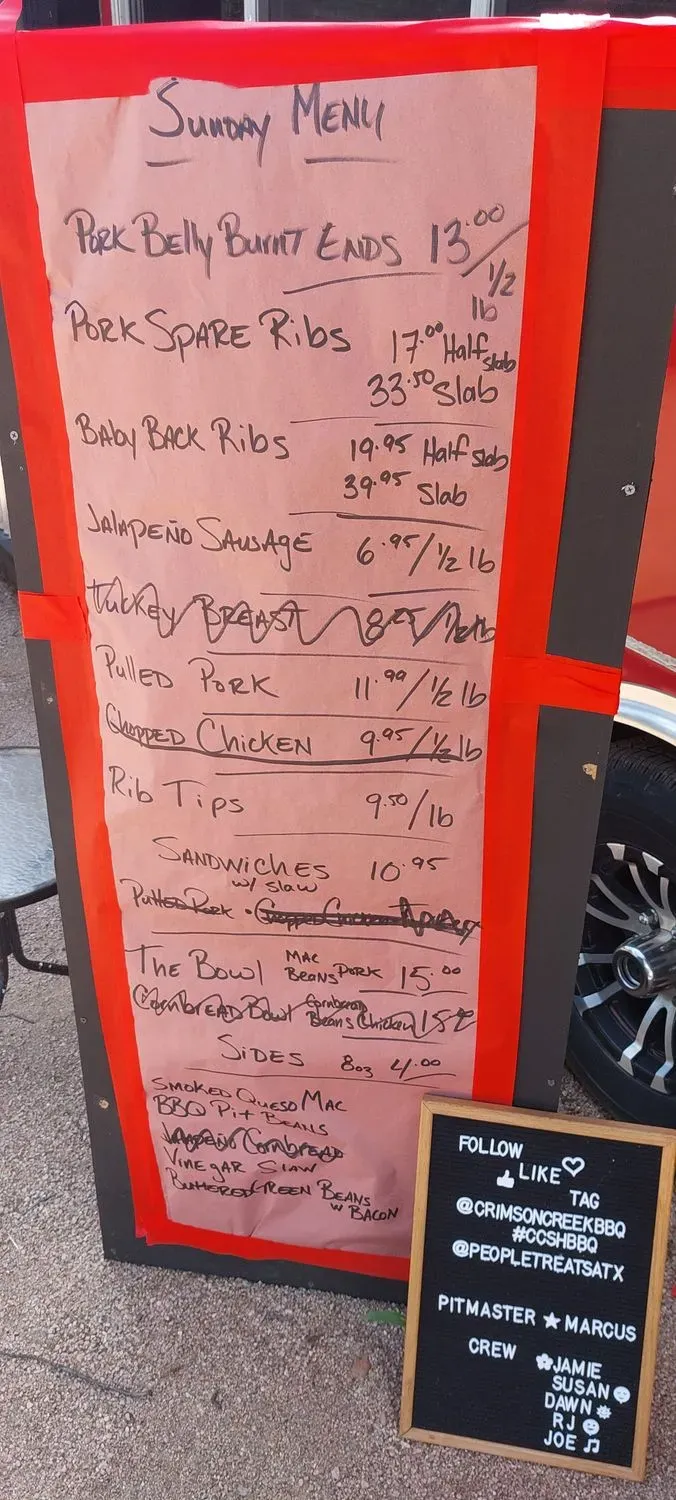 Sunday Menu
Pork Belly Burnt Ends 13.00/
1/2
lb
Pork Spare Ribs 17.00 Half slab
33.50 Slab
Baby Back Ribs 19.95 Half slab
39.95 Slab
Jalapeño Sausage 6.95/1/2 lb
Turkey Breast 8.25/1/2 lb
Pulled Pork 11.99/1/2 lb
Chopped Chicken 9.95/1/2 lb
Rib Tips 9.50/lb
Sandwiches 10.95
w/ slaw
Pulled Pork • Chopped Chicken
The Bowl Mac Beans Pork 15.00
Cornbread Bowl Cornbread Beans Chicken 15
Sides 8oz 4.00
Smoked Queso Mac
BBQ Pit Beans
Jalapeño Cornbread
Vinegar Slaw
Buttered Green Beans
w Bacon
FOLLOW
LIKE
TAG
@CRIMSONCREEKBBQ
#CCSHBBQ
@PEOPLETREATSATX
PITMASTER ★ MARCUS
CREW
JAMIE
SUSAN
DAWN
RJ
JOE ♫